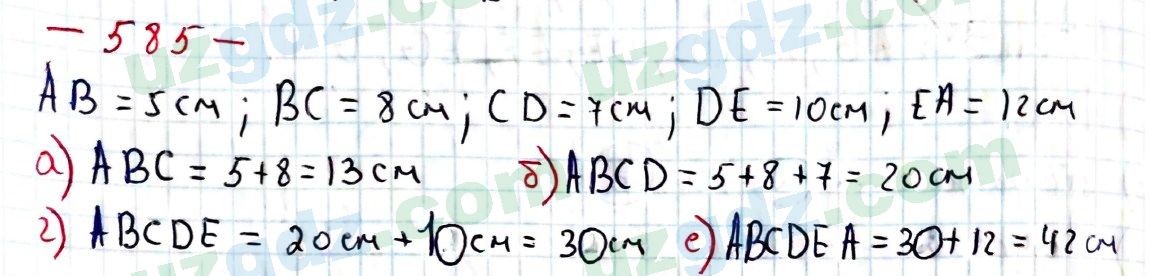 - 585 -
AB = 5 см ; BC = 8 см ; CD = 7 см ; DE = 10 см ; EA = 12 см
а) ABC = 5 + 8 = 13 см б) ABCD = 5 + 8 + 7 = 20 см
г) ABCDE = 20 см + 10 см = 30 см е) ABCDEA = 30 + 12 = 42 см
uzgdz.com